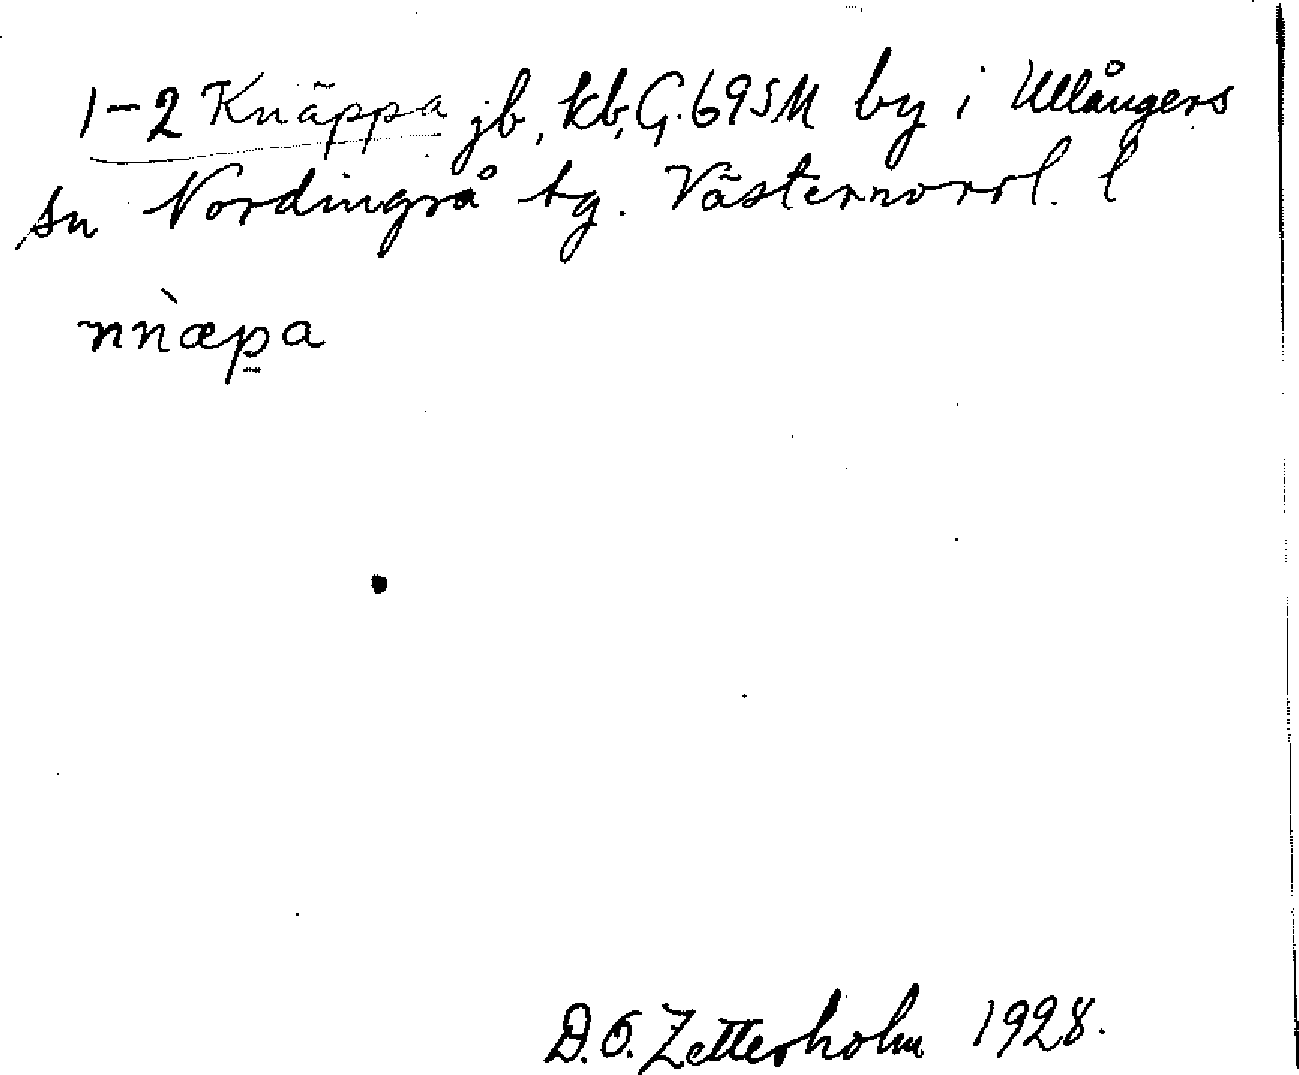 1-2 Knäppa jb, kb, G. 69 SM by i Ullångers
sn Nordingrå tg. Västernorrl. l
nǹæp̲a
D. O. Zetterholm 1928.